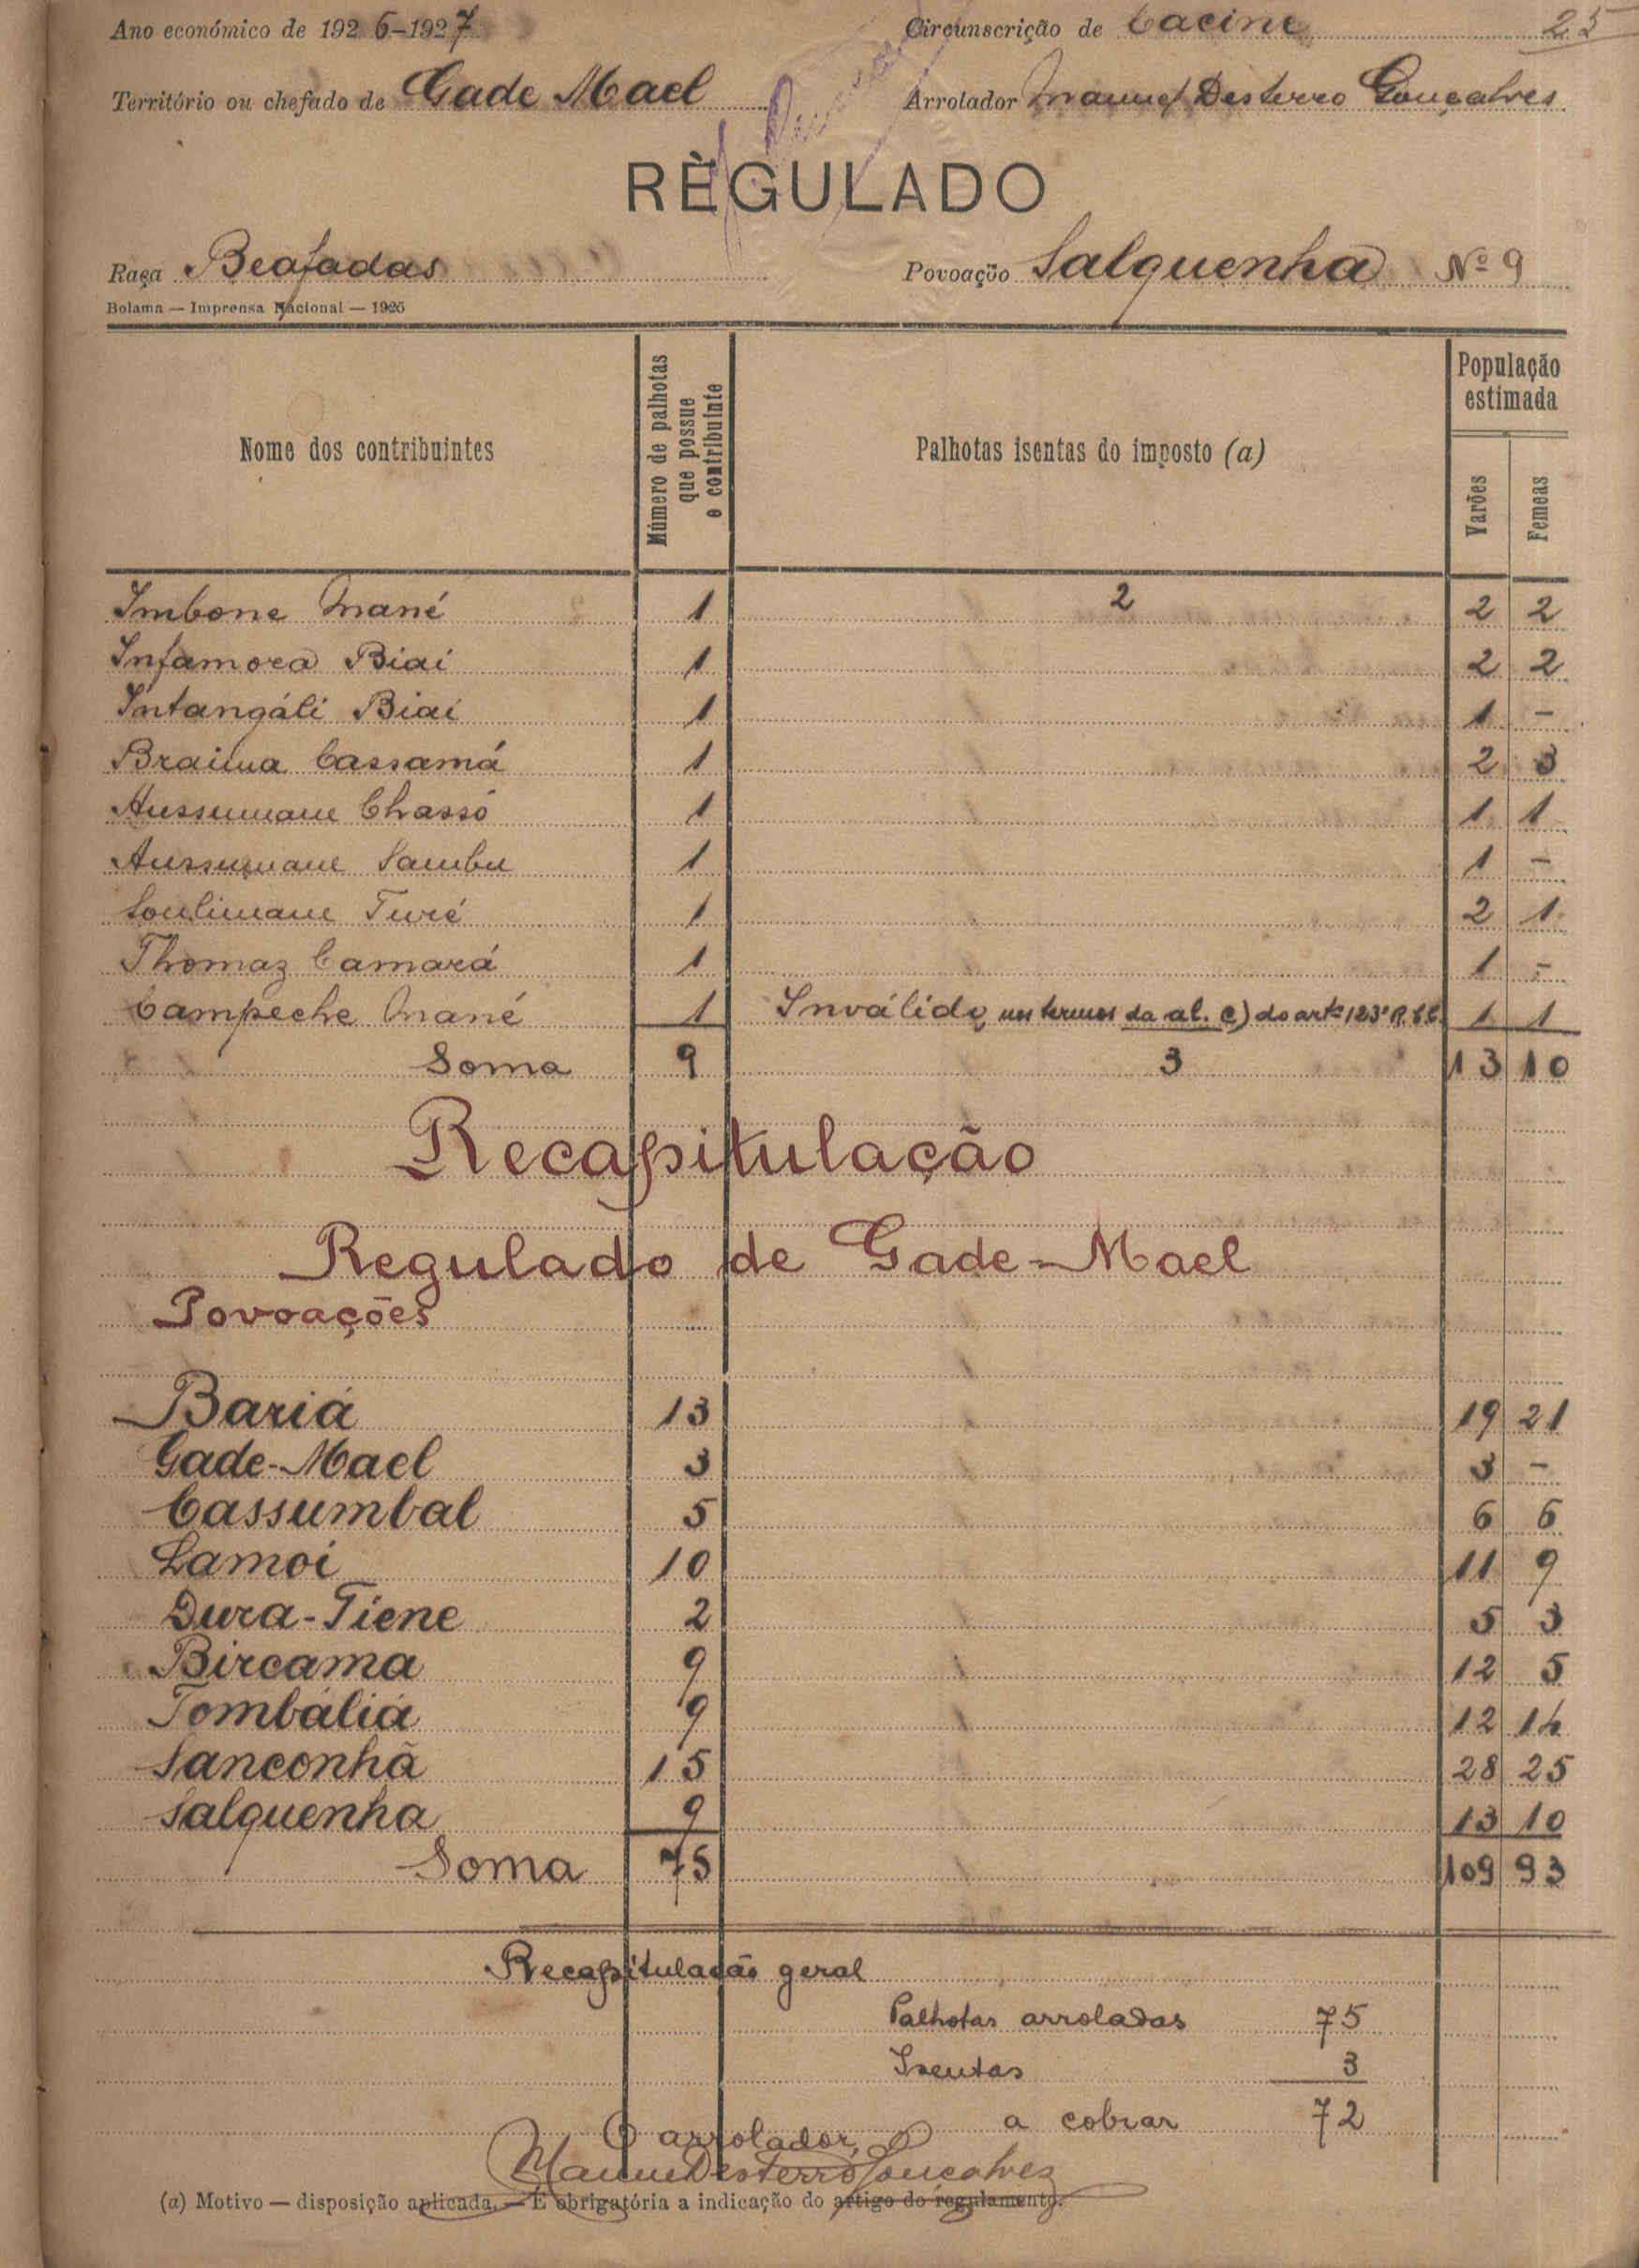 Ano económico de 1926-1927 Circunscrição de Cacine 25
Território ou chefado de Gade Mael Arrolador Manuel Desterro Gonçalves
RÈGULADO
Raça Beafadas Povoação Salquenha Nº 9
Bolama — Imprensa Nacional — 1926
Nome dos contribuintes
Número de palhotas que possue o contribuinte
Palhotas isentas do imposto (a)
População estimada
Varões Femeas
Imbone Mané 1 2 2 2
Infamora Biai 1 2 2
Intangáli Biai 1 1 -
Braima Cassamá 1 2 3
Aussumane Chassó 1 1 1
Aussumane Sambu 1 1 -
Soulimane Turé 1 2 1
Thomaz Camará 1 1 -
Campeche Mané 1 Inválido nos termos da al. c) do artº 123º 1 1
Soma 9 3 13 10
Recapitulação
Regulado de Gade-Mael
Povoações
Bariá 13 19 21
Gade-Mael 3 3 -
Cassumbal 5 6 6
Lamoi 10 11 9
Dura-Tiene 2 5 3
Bircama 9 12 5
Tombáliá 9 12 14
Sanconhã 15 28 25
Salquenha 9 13 10
Soma 75 109 93
Recapitulação geral
Palhotas arroladas 75
Isentas 3
a cobrar 72
O arrolador,
Manuel Desterro Gonçalves
(a) Motivo — disposição aplicada. — É obrigatória a indicação do artigo do regulamento.